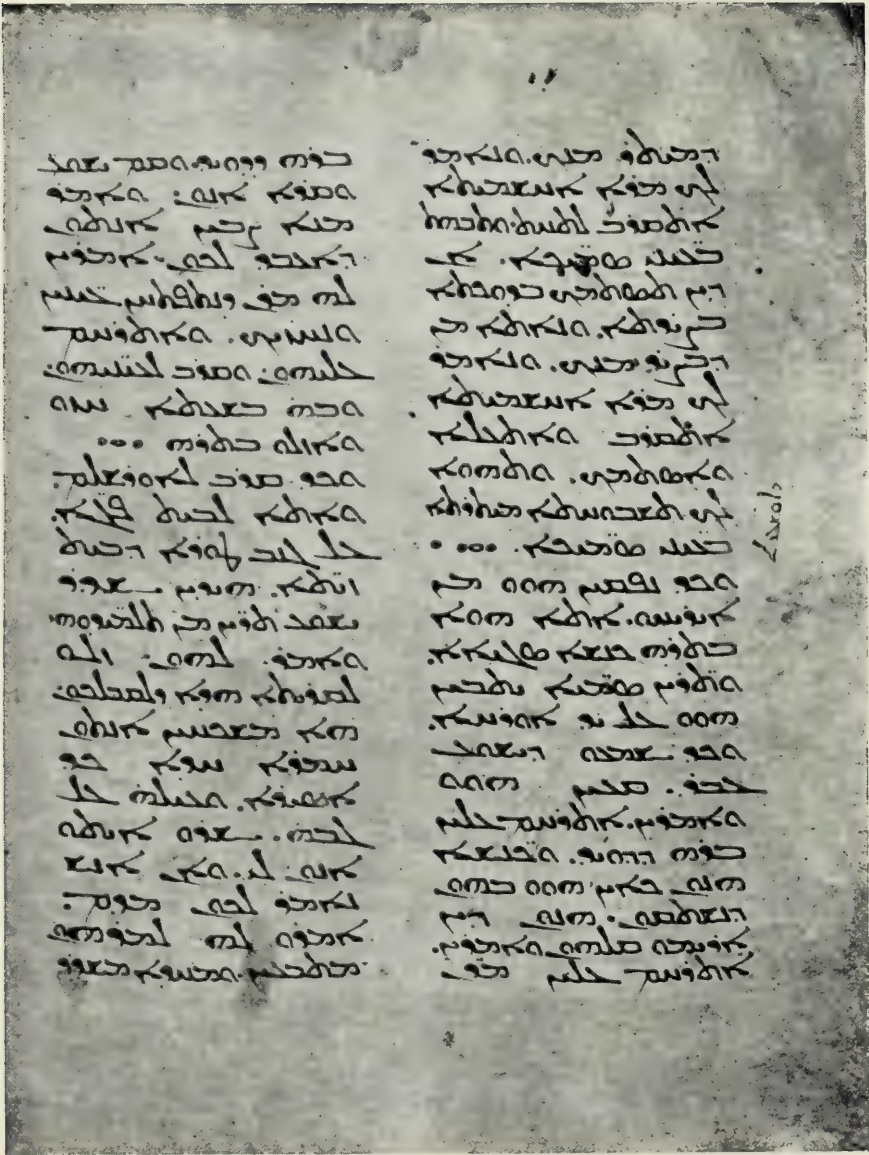 ܕܡܝܬܪ ܡܢܟ. ܘܢܐܡܪ
ܠܟ ܡܪܐ ܐܚܫܡܝܬܐ
ܐܬܩܪܒ ܠܬܚܬ. ܘܬܒܗܬ
ܒܥܝܢܝ ܣܡܝܟܐ. ܐܢ
ܕܝܢ ܬܣܬܡܟ ܒܕܘܟܬܐ
ܒܨܝܪܬܐ. ܘܢܐܬܐ ܡܢ
ܕܒܨܝܪ ܡܢܟ. ܘܢܐܡܪ
ܠܟ ܡܪܐ ܐܚܫܡܝܬܐ
ܐܬܩܪܒ ܘܐܬܥܠܐ
ܘܐܣܬܡܟ. ܘܬܗܘܐ
ܠܟ ܬܫܒܘܚܬܐ ܡܝܬܪܬܐ
ܒܥܝܢܝ ܣܡܝܟܐ.
ܘܟܕ ܢܦܩܝܢ ܗܘܘ ܡܢ
ܐܝܪܝܚܘ. ܐܬܐ ܗܘܐ
ܒܬܪܗ ܟܢܫܐ ܣܓܝܐܐ.
ܘܬܪܝܢ ܣܡܝܐ ܝܬܒܝܢ
ܗܘܘ ܥܠ ܝܕ ܐܘܪܚܐ.
ܘܟܕ ܫܡܥܘ ܕܝܫܘܥ
ܥܒܪ. ܩܥܝܢ ܗܘܘ
ܘܐܡܪܝܢ. ܐܬܪܚܡ ܥܠܝܢ
ܒܪܗ ܕܕܘܝܕ. ܘܟܢܫܐ
ܗܢܘܢ ܟܐܝܢ ܗܘܘ ܒܗܘܢ
ܕܢܫܬܩܘܢ. ܗܢܘܢ ܕܝܢ
ܐܪܝܡܘ ܩܠܗܘܢ ܘܐܡܪܝܢ.
ܐܬܪܚܡ ܥܠܝܢ ܡܪܢ
ܒܪܗ ܕܕܘܝܕ. ܘܩܡ ܝܫܘܥ
ܘܩܪܐ ܐܢܘܢ. ܘܐܡܪ
ܡܢܐ ܨܒܝܢ ܐܢܬܘܢ
ܕܐܥܒܕ ܠܟܘܢ. ܐܡܪܝܢ
ܠܗ ܡܪܢ ܕܢܬܦܬܚܢ ܥܝܢܝܢ
ܘܢܚܙܝܟ. ܘܐܬܪܚܡ
ܥܠܝܗܘܢ. ܘܩܪܒ ܠܥܝܢܝܗܘܢ.
ܘܒܗ ܒܫܥܬܐ ܚܙܘ
ܘܐܙܠܘ ܒܬܪܗ
ܘܟܕ ܩܪܒ ܠܐܘܪܫܠܡ.
ܘܐܬܐ ܠܒܝܬ ܦܓܐ.
ܥܠ ܓܢܒ ܛܘܪܐ ܕܒܝܬ
ܙܝܬܐ. ܗܝܕܝܢ ܫܕܪ
ܝܫܘܥ ܬܪܝܢ ܡܢ ܬܠܡܝܕܘܗܝ
ܘܐܡܪ ܠܗܘܢ. ܙܠܘ
ܠܩܪܝܬܐ ܗܕܐ ܕܠܩܒܠܟܘܢ.
ܗܐ ܡܫܟܚܝܢ ܐܢܬܘܢ
ܚܡܪܐ ܚܕܐ ܟܕ
ܐܣܝܪܐ. ܘܥܝܠܗ ܥܠ
ܓܒܗ. ܫܪܘ ܐܝܬܘ
ܐܢܘܢ ܠܝ. ܘܐܢ ܐܢܫ
ܢܐܡܪ ܠܟܘܢ ܡܕܡ.
ܐܡܪܘ ܠܗ ܠܡܪܗܘܢ
ܡܬܒܥܝܢ. ܘܡܚܕܐ ܡܫܕܪ